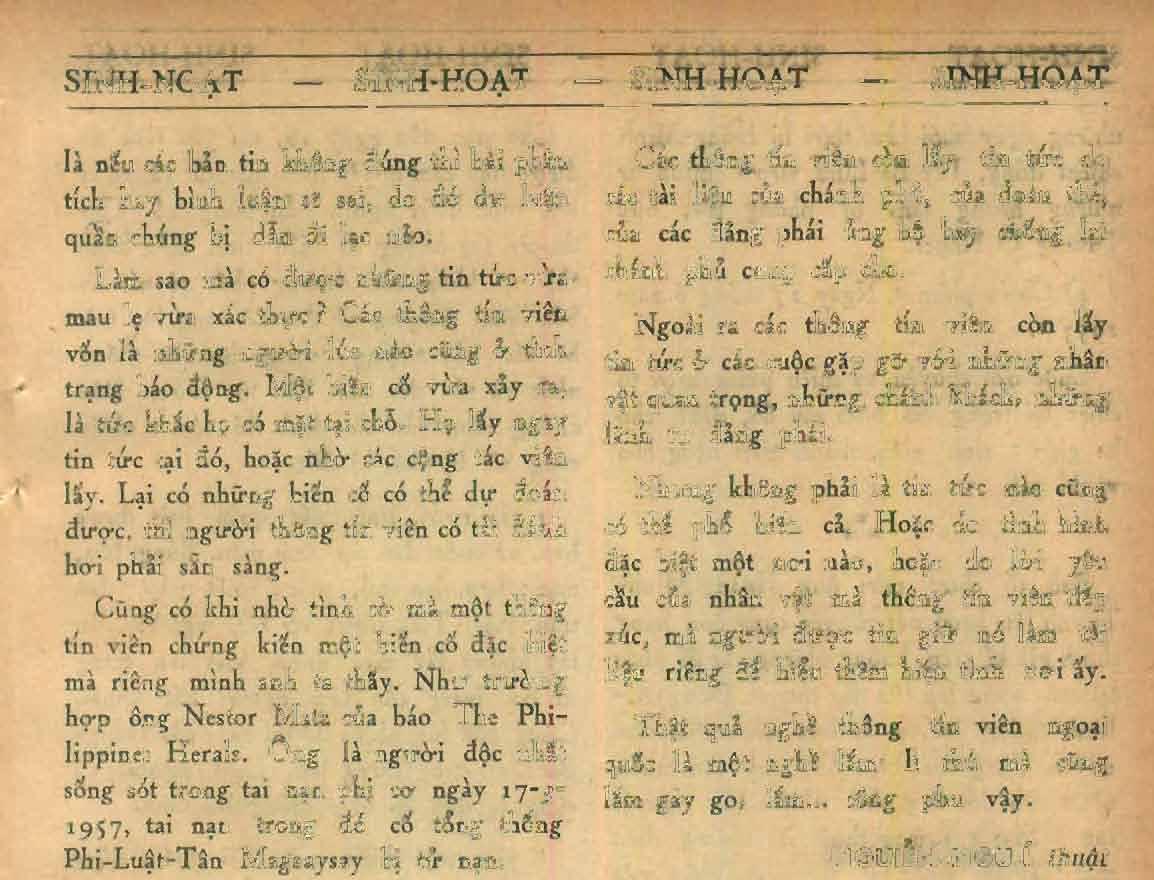 SINH-HOẠT — SINH-HOẠT — SINH-HOẠT — SINH-HOẠT
là nếu các bản tin không đúng thì bài phân
tích hay bình luận sẽ sai, do đó dư luận
quần chúng bị dẫn đi lạc nẻo.
Làm sao mà có được những tin tức vừa
mau lẹ vừa xác thực? Các thông tín viên
vốn là những người lúc nào cũng ở tình
trạng báo động. Một biến cố vừa xảy ra,
là tức khắc họ có mặt tại chỗ. Họ lấy ngay
tin tức tại đó, hoặc nhờ các cộng tác viên
lấy. Lại có những biến cố có thể dự đoán
được, thì người thông tín viên có tài đánh
hơi phải sẵn sàng.
Cũng có khi nhờ tình cờ mà một thông
tín viên chứng kiến một biến cố đặc biệt
mà riêng mình anh ta thấy. Như trường
hợp ông Nestor Mata của báo The Phi-
lippines Herals. Ông là người độc nhất
sống sót trong tai nạn phi cơ ngày 17-3-
1957, tai nạn trong đó cố tổng thống
Phi-Luật-Tân Magsaysay bị tử nạn.
Các thông tín viên còn lấy tin tức do
các tài liệu của chánh phủ, của đoàn thể,
của các đảng phái ủng hộ hay chống lại
chánh phủ cung cấp cho.
Ngoài ra các thông tín viên còn lấy
tin tức ở các cuộc gặp gỡ với những nhân
vật quan trọng, những chánh khách, những
lãnh tụ đảng phái.
Nhưng không phải là tin tức nào cũng
có thể phổ biến cả. Hoặc do tình hình
đặc biệt một nơi nào, hoặc do lời yêu
cầu của nhân vật mà thông tín viên tiếp
xúc, mà người được tin giữ nó làm tài
liệu riêng để hiểu thêm hiện tình nơi ấy.
Thật quả nghề thông tín viên ngoại
quốc là một nghề lắm lí thú mà cũng
lắm gay go, lắm... công phu vậy.
NGUIỄN NGU Í thuật